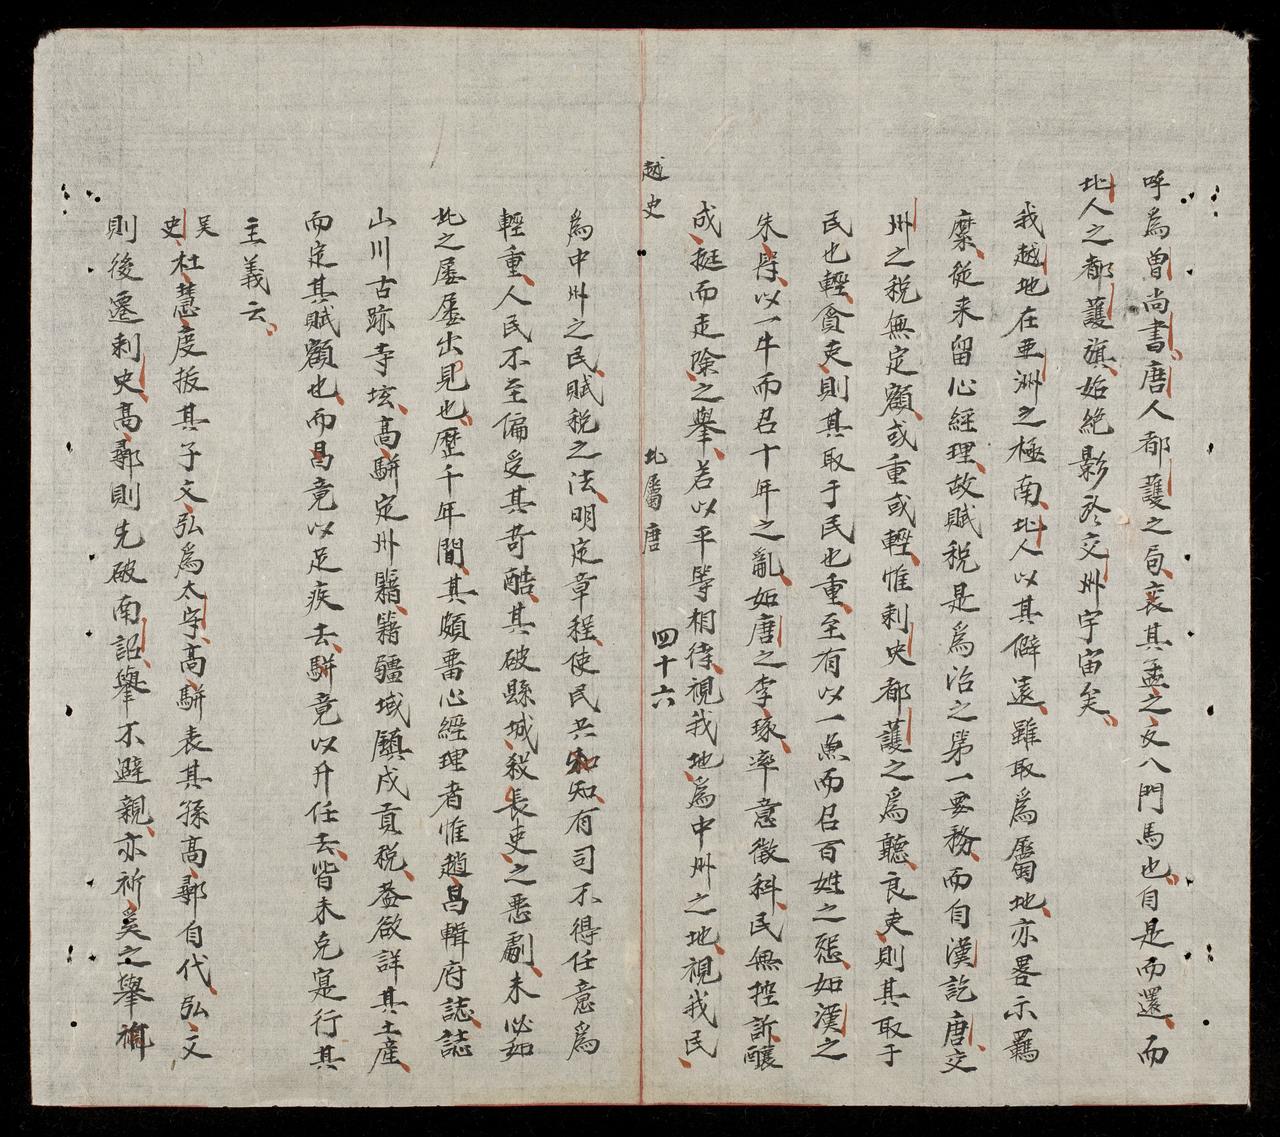 呼為曾尚書唐人都護之旬哀其孟之文八門馬也自是而還而
北人之都護旗始絶影於交州宇宙矣
我越地在亞洲之極南北人以其僻遠雖取為屬地亦畧示羈
縻從来留心經理故賦税是為治之第一要務而自漢訖唐交
州之税無定額或重或輕惟刺史都護之為聽良吏則其取于
民也輕貪吏則其取于民也重至有以一魚而召百姓之愁如漢之
朱以一牛而召十年之亂如唐之李琢率意徵科民無控訴釀
成挺而走險之舉若以平等相待視我地為中州之地視我民
越史 北屬唐 四十六
為中州之民賦税之法明定章程使民共知有司不得任意為
輕重人民不至偏受其苛酷其破縣城殺長吏之惡劇未必如
此之屢屢出見也歷千年間其頗畱心經理者惟趙昌輯府誌誌
山川古跡寺垓高駢定州籍籍疆域鎮戍貢税蓋欲詳其土産
而定其賦額也而昌竟以足疾去駢竟以升任去皆未克寔行其
主義云
吴史杜慧度拔其子文弘為太守高駢表其孫高鄩自代弘文
則後遷刺史高鄩則先破南詔舉不避親亦祈奚之舉